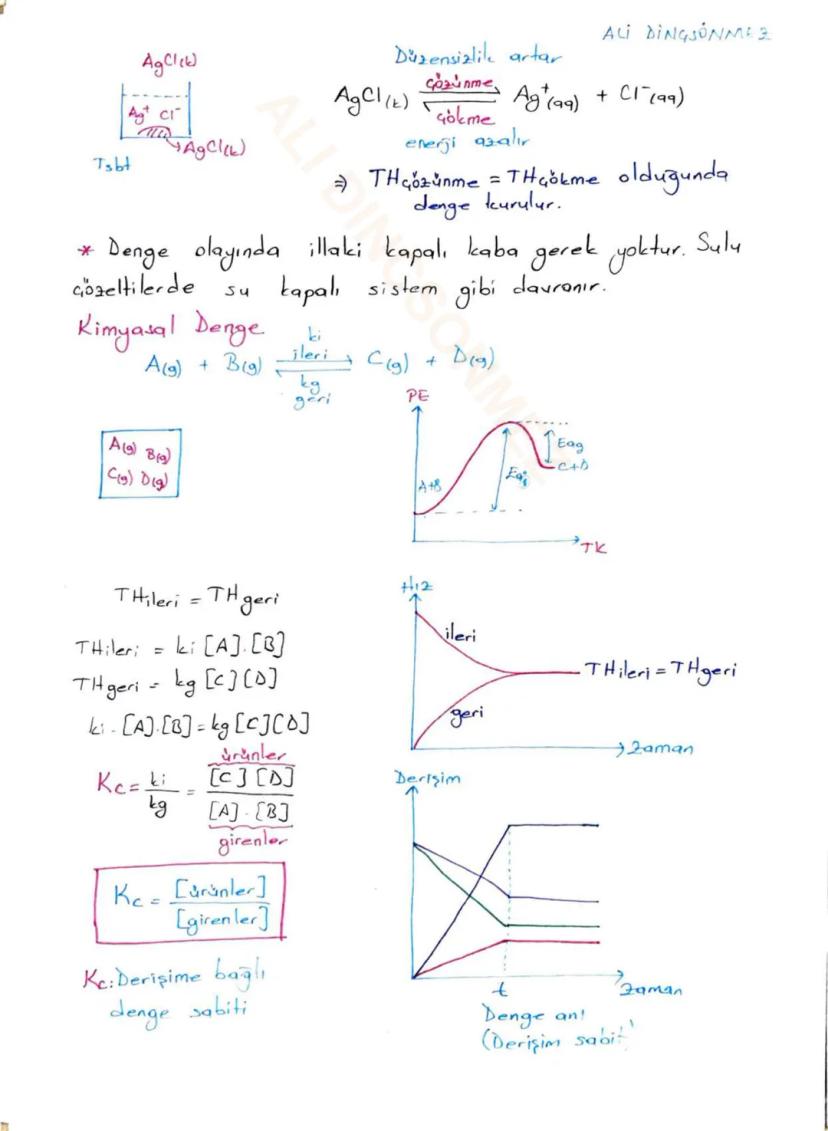 ALİ DİNÇSÖNMEZ
AgCl(k)
Ag⁺ Cl⁻
AgCl(k)
Tsbt
Düzensizlik artar
AgCl(k) çözünme çökme Ag⁺(aq) + Cl⁻(aq)
enerji azalır
⇒ THçözünme = THçökme olduğunda
denge kurulur.
* Denge olayında illaki kapalı kaba gerek yoktur. Sulu
çözeltilerde su kapalı sistem gibi davranır.
Kimyasal Denge
A(g) + B(g) ki ileri kg geri C(g) + D(g)
A(g) B(g)
C(g) D(g)
PE
A+B
Eai
Eag
C+D
TK
THileri = THgeri
THileri = ki [A].[B]
THgeri = kg [C][D]
ki.[A].[B] = kg[C][D]
Kc = ki/kg = [C][D]/[A].[B]
ürünler
girenler
Kc = [ürünler]/[girenler]
Kc: Derişime bağlı
denge sabiti
Hız
ileri
geri
THileri = THgeri
Zaman
Derişim
t
Zaman
Denge anı
(Derişim sabit)
ALİ DİNÇSÖNMEZ